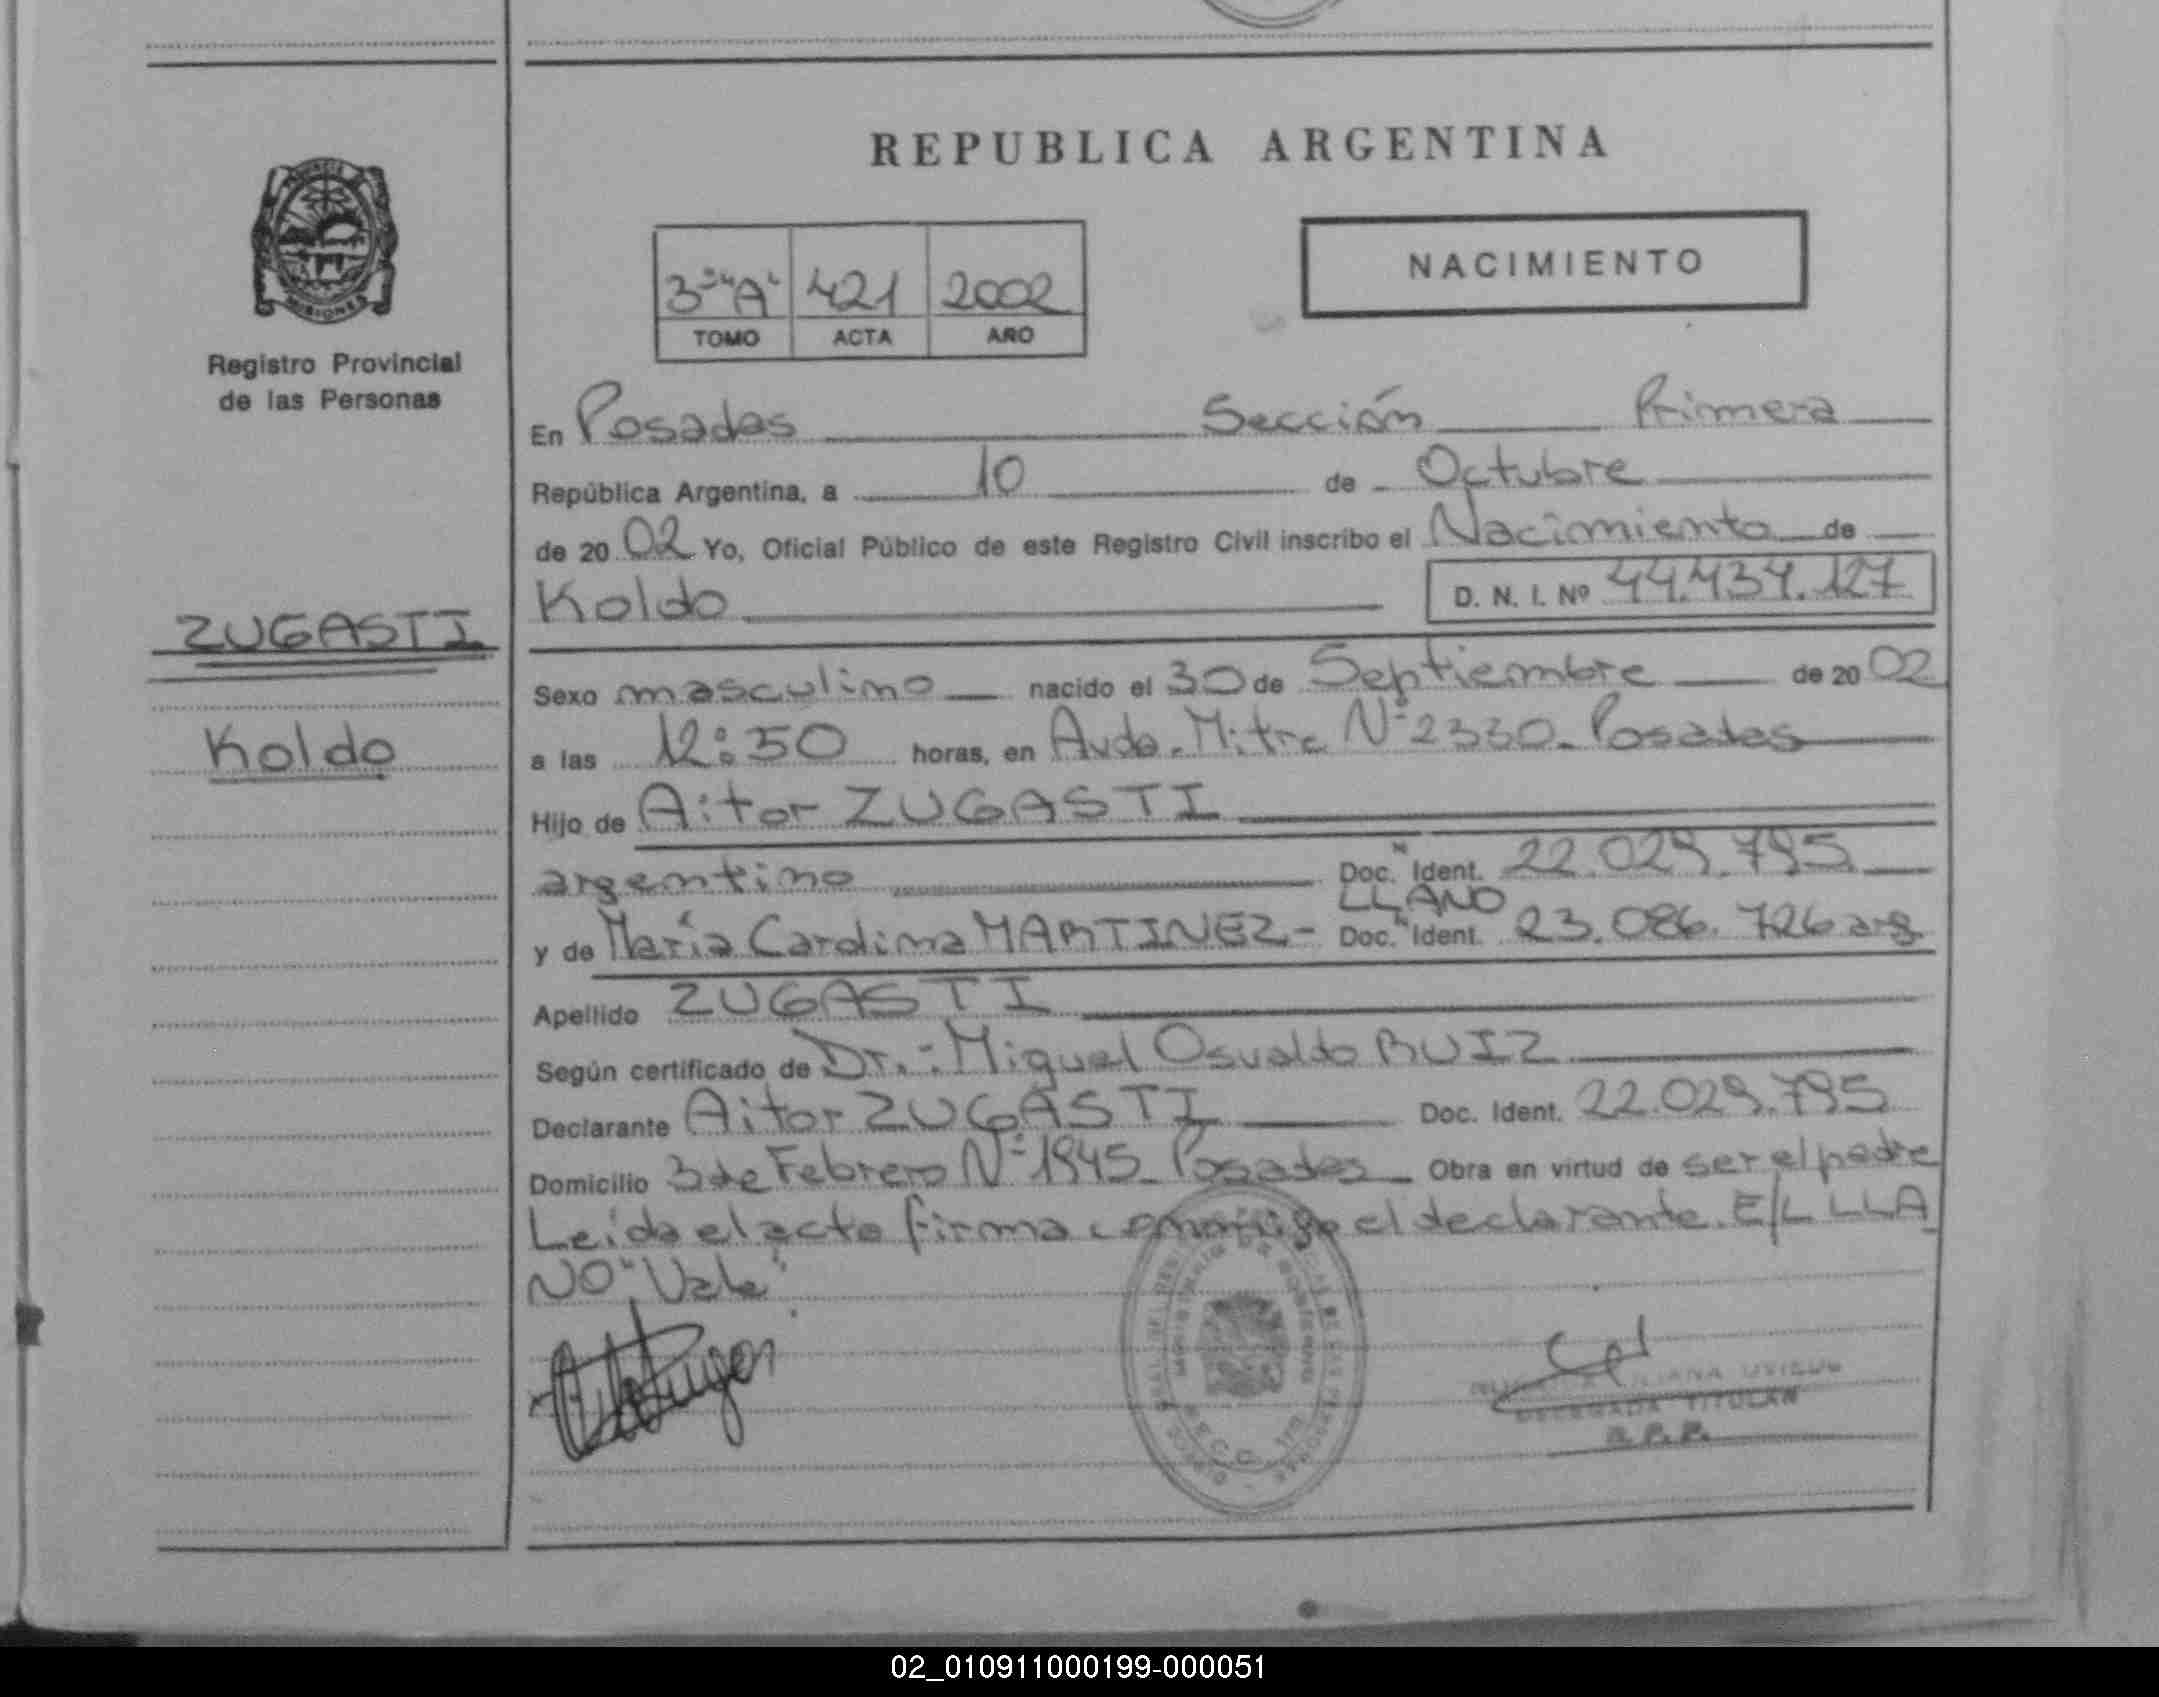 REPUBLICA ARGENTINA
NACIMIENTO
3º "A" 421 2002
TOMO ACTA AÑO
PROVINCIA DE
MISIONES
Registro Provincial
de las Personas
En Posadas Sección Primera
República Argentina, a 10 de Octubre
de 20 02 Yo, Oficial Público de este Registro Civil inscribo el Nacimiento de
Koldo D. N. I. Nº 44.434.127
ZUGASTI
Koldo
Sexo masculino nacido el 30 de Septiembre de 20 02
a las 12:50 horas, en Avda. Mitre Nº 2330. Posadas
Hijo de Aitor ZUGASTI
argentino Doc. Ident. 22.029.795
LLANO
y de María Cardina MARTINEZ- Doc. Ident. 23.086.726 arg
Apellido ZUGASTI
Según certificado de Dr.: Miguel Osvaldo RUIZ
Declarante Aitor ZUGASTI Doc. Ident. 22.029.795
Domicilio 3 de Febrero Nº 1945. Posadas Obra en virtud de ser el padre
Leída el acta firma conmigo el declarante. E/L LLA
NO "Vale".
DELEGADA TITULAR
R.P.P.
02_010911000199-000051